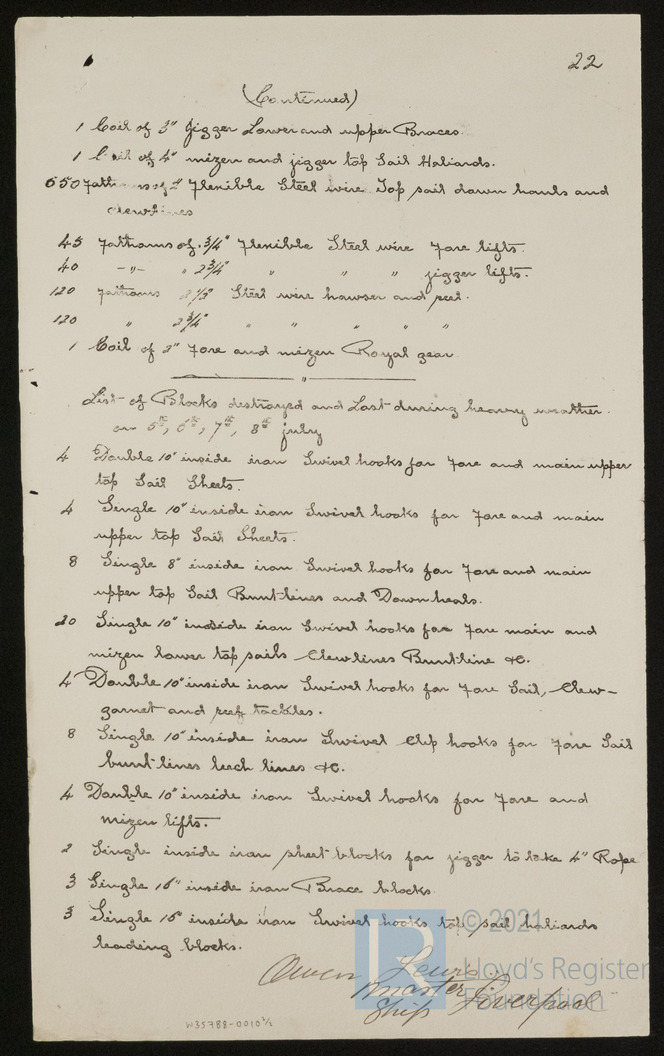 22
(Continued)
1 Coil of 3" Jigger Lower and upper Braces.
1 Coil of 4" mizen and jigger top Sail Haliards.
650 Fathoms of 2" Flexible Steel wire Top sail down hauls and
clewlines
45 Fathoms of 3/4" Flexible Steel wire Fore lifts.
40 -"- " 2 3/4" " " " jigger lifts.
120 Fathoms 2 1/3" Steel wire hawser and reel.
120 " 2 3/4" " " " " "
1 Coil of 2" Fore and mizen Royal gear
"
List of Blocks destroyed and Last during heavy weather.
on 5th, 6th, 7th, 8th July
4 Double 10" inside iron Swivel hooks for Fore and main upper
top Sail Sheets.
4 Single 10" inside iron Swivel hooks for Fore and main
upper top Sail Sheets.
8 Single 8" inside iron Swivel hooks for Fore and main
upper top Sail Buntlines and Downheals.
20 Single 10" inside iron Swivel hooks for Fore main and
mizen lower top sails Clewlines Buntline &c.
4 Double 10" inside iron Swivel hooks for Fore Sail, Clew-
garnet and reef tackles.
8 Single 10" inside iron Swivel Clip hooks for Fore Sail
buntlines leech lines &c.
4 Double 10" inside iron Swivel hooks for Fore and
mizen lifts.
2 Single inside iron sheet blocks for jigger to take 4" Rope
3 Single 10" inside iron Brace blocks
3 Single 10" inside iron Swivel hooks top sail haliards
leading blocks.
Owen Lewis.
Master
Ship Liverpool
© 2021
Lloyd's Register
Foundation
W35788-0010 1/2